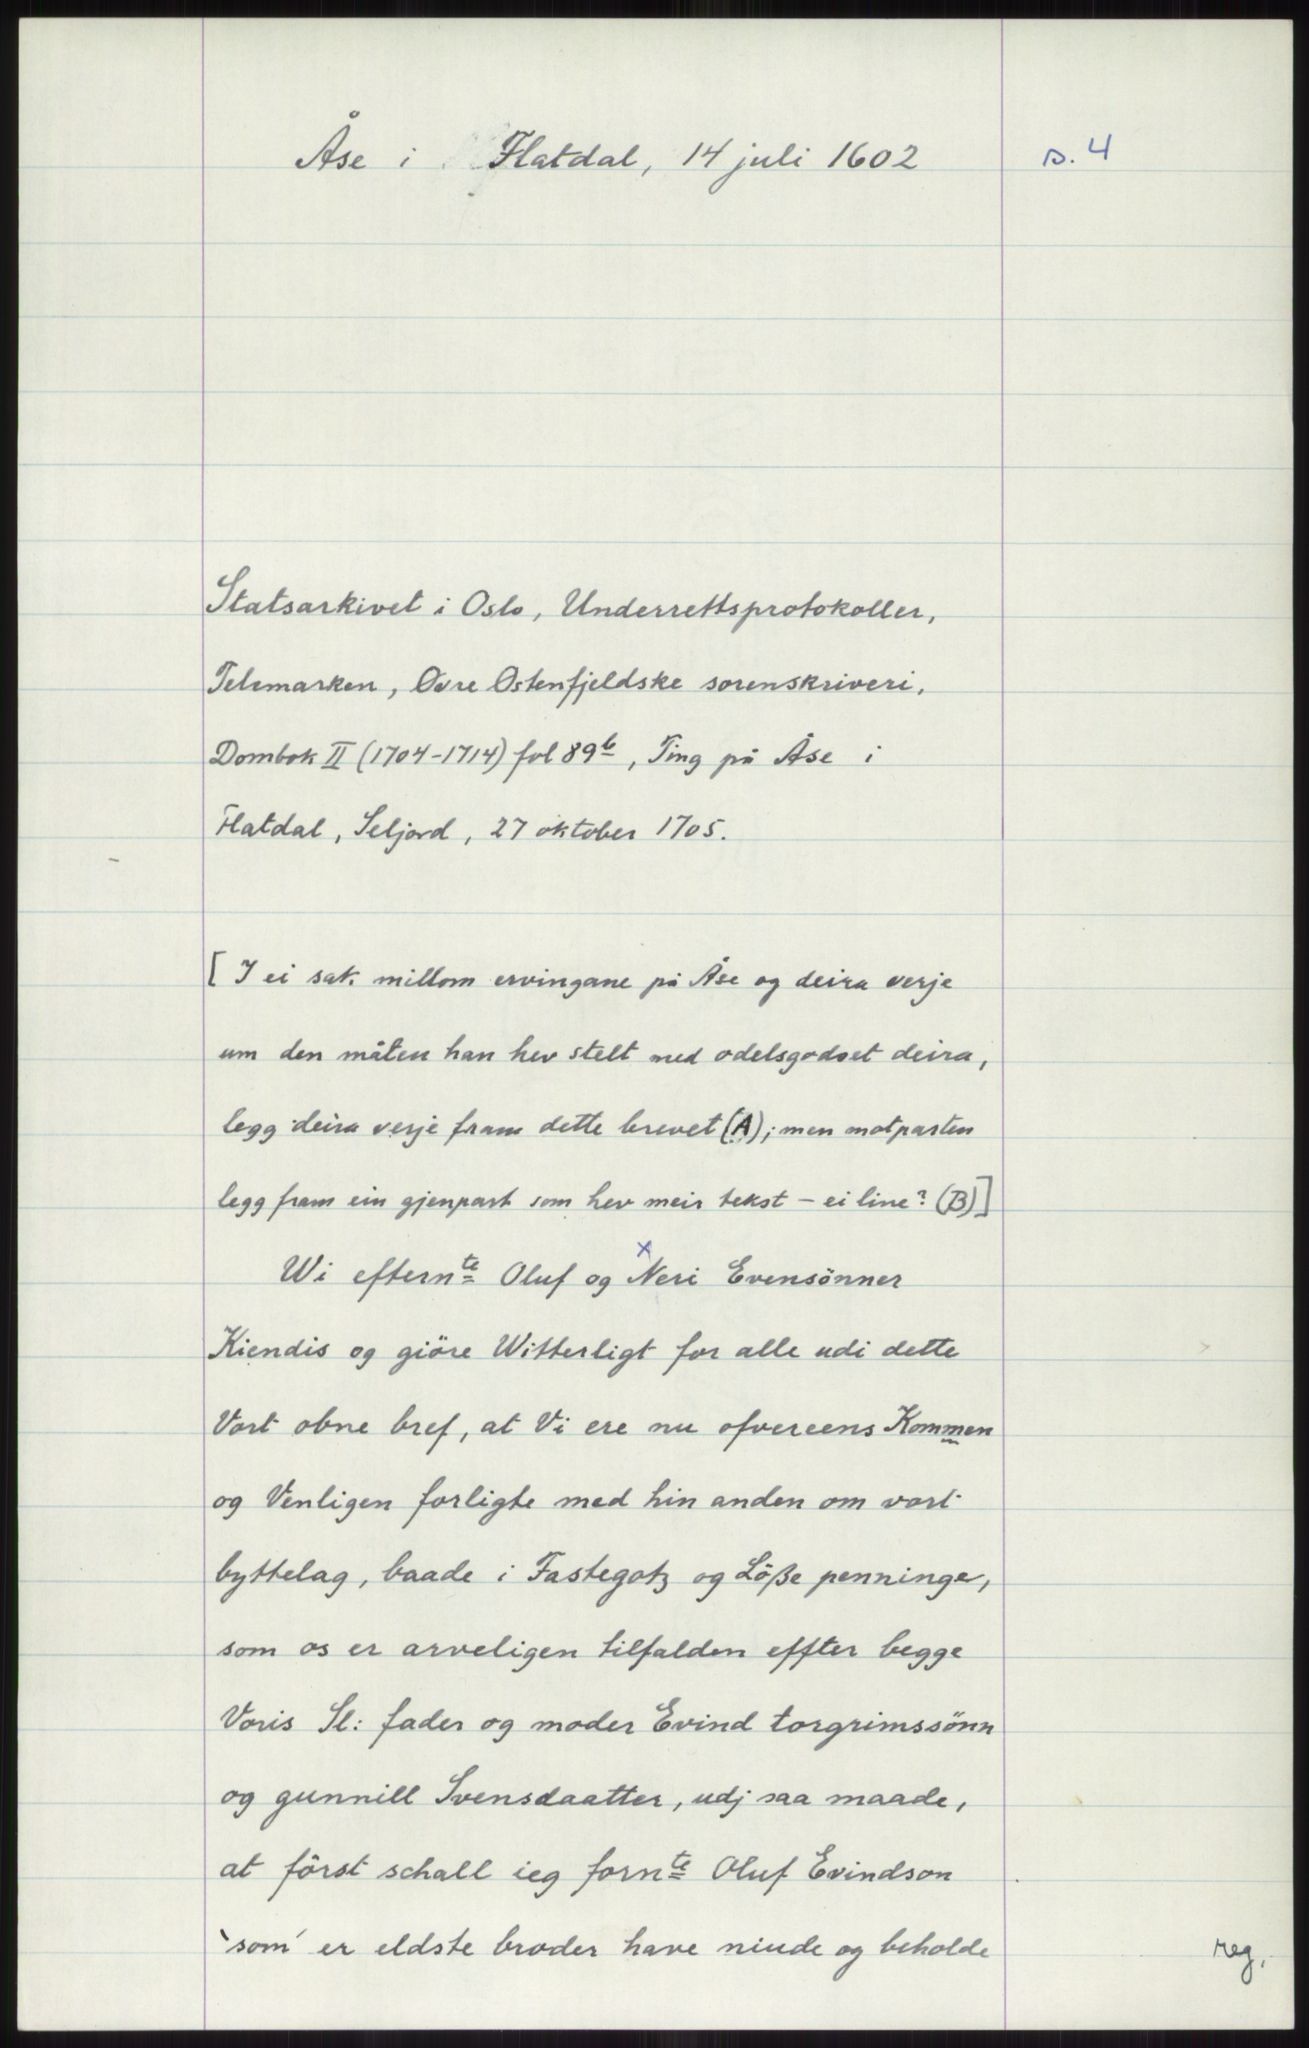 Åse i Flatdal, 14 juli 1602 s. 4
Statsarkivet i Oslo, Underrettsprotokoller,
Telemarken, Øvre Østenfjeldske sorenskriveri,
Dombok II (1704-1714) fol 89b, Ting på Åse i
Flatdal, Seljord, 27 oktober 1705.
[I ei sak millom ervingane på Åse og deira verje
um den måten han hev stelt med odelsgodset deira,
legg deira verje fram dette brevet (A); men motparten
legg fram ein gjenpart som hev meir tekst - ei line? (B)]
x
Wi efternte Oluf og Neri Evensönner
Kiendis og giöre Witterligt for alle udi dette
Vort obne bref, at Vi ere nu ofvereens Kommen
og Venligen forligte med hin anden om vort
byttelag, baade i Fastegotz og Löße penninge,
som os er arveligen tilfalden effter begge
Voris Sl: fader og moder Evind torgrimssönn
og gunnill Svensdaatter, udj saa maade,
at först schall ieg fornte Oluf Evindson
`som´ er eldste broder have niude og beholde
reg.